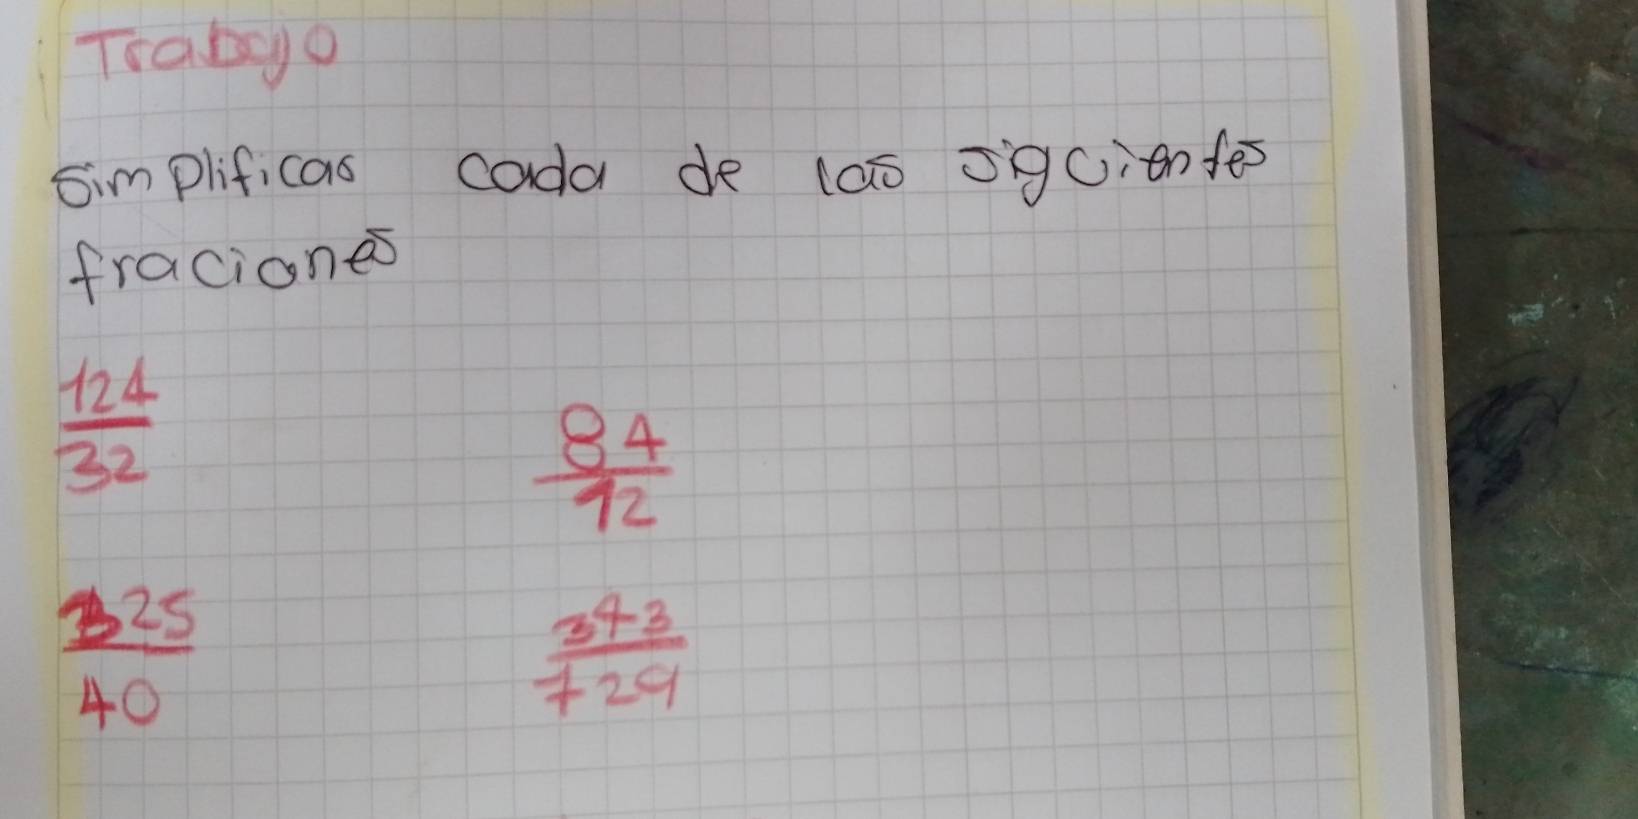 Trabajo
Simplificas cada de las sigcientes
fraciones
124
32
84
12
325
40
343
729